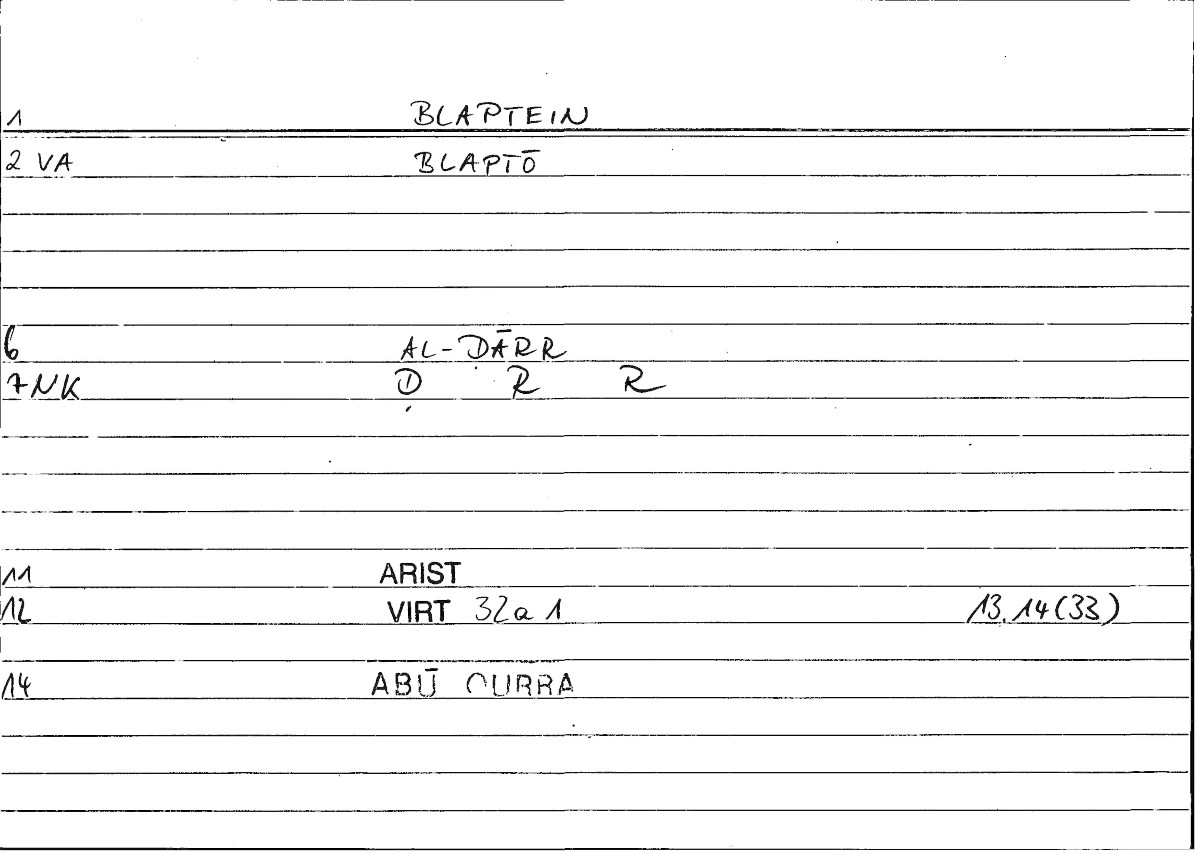 1 BLAPTEIN
2 VA BLAPTŌ
6 AL-ḌĀRR
7 NK Ḍ R R
11 ARIST
12 VIRT 32a 1 13.14(33)
14 ABŪ QURRA